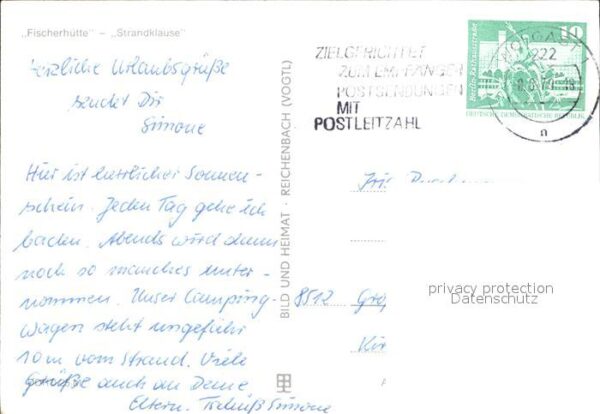 „Fischerhütte" – „Strandklause"
Herzliche Urlaubsgrüße
sendet Dir
Simone
Hier ist herrlicher Sonnen-
schein. Jeden Tag gehe ich
baden. Abends wird dann
noch so manches unter-
nommen. Unser Camping-
wagen steht ungefähr
10 m vom Strand. Viele
Grüße auch an Deine
Eltern. Tschüß Simone
BILD UND HEIMAT · REICHENBACH (VOGTL)
ZIELGERICHTET
ZUM EMPFÄNGER
POSTSENDUNGEN
MIT
POSTLEITZAHL
WOLGAST
222
a
10
Berlin, Rathausstraße
DEUTSCHE DEMOKRATISCHE REPUBLIK
8512
privacy protection
Datenschutz